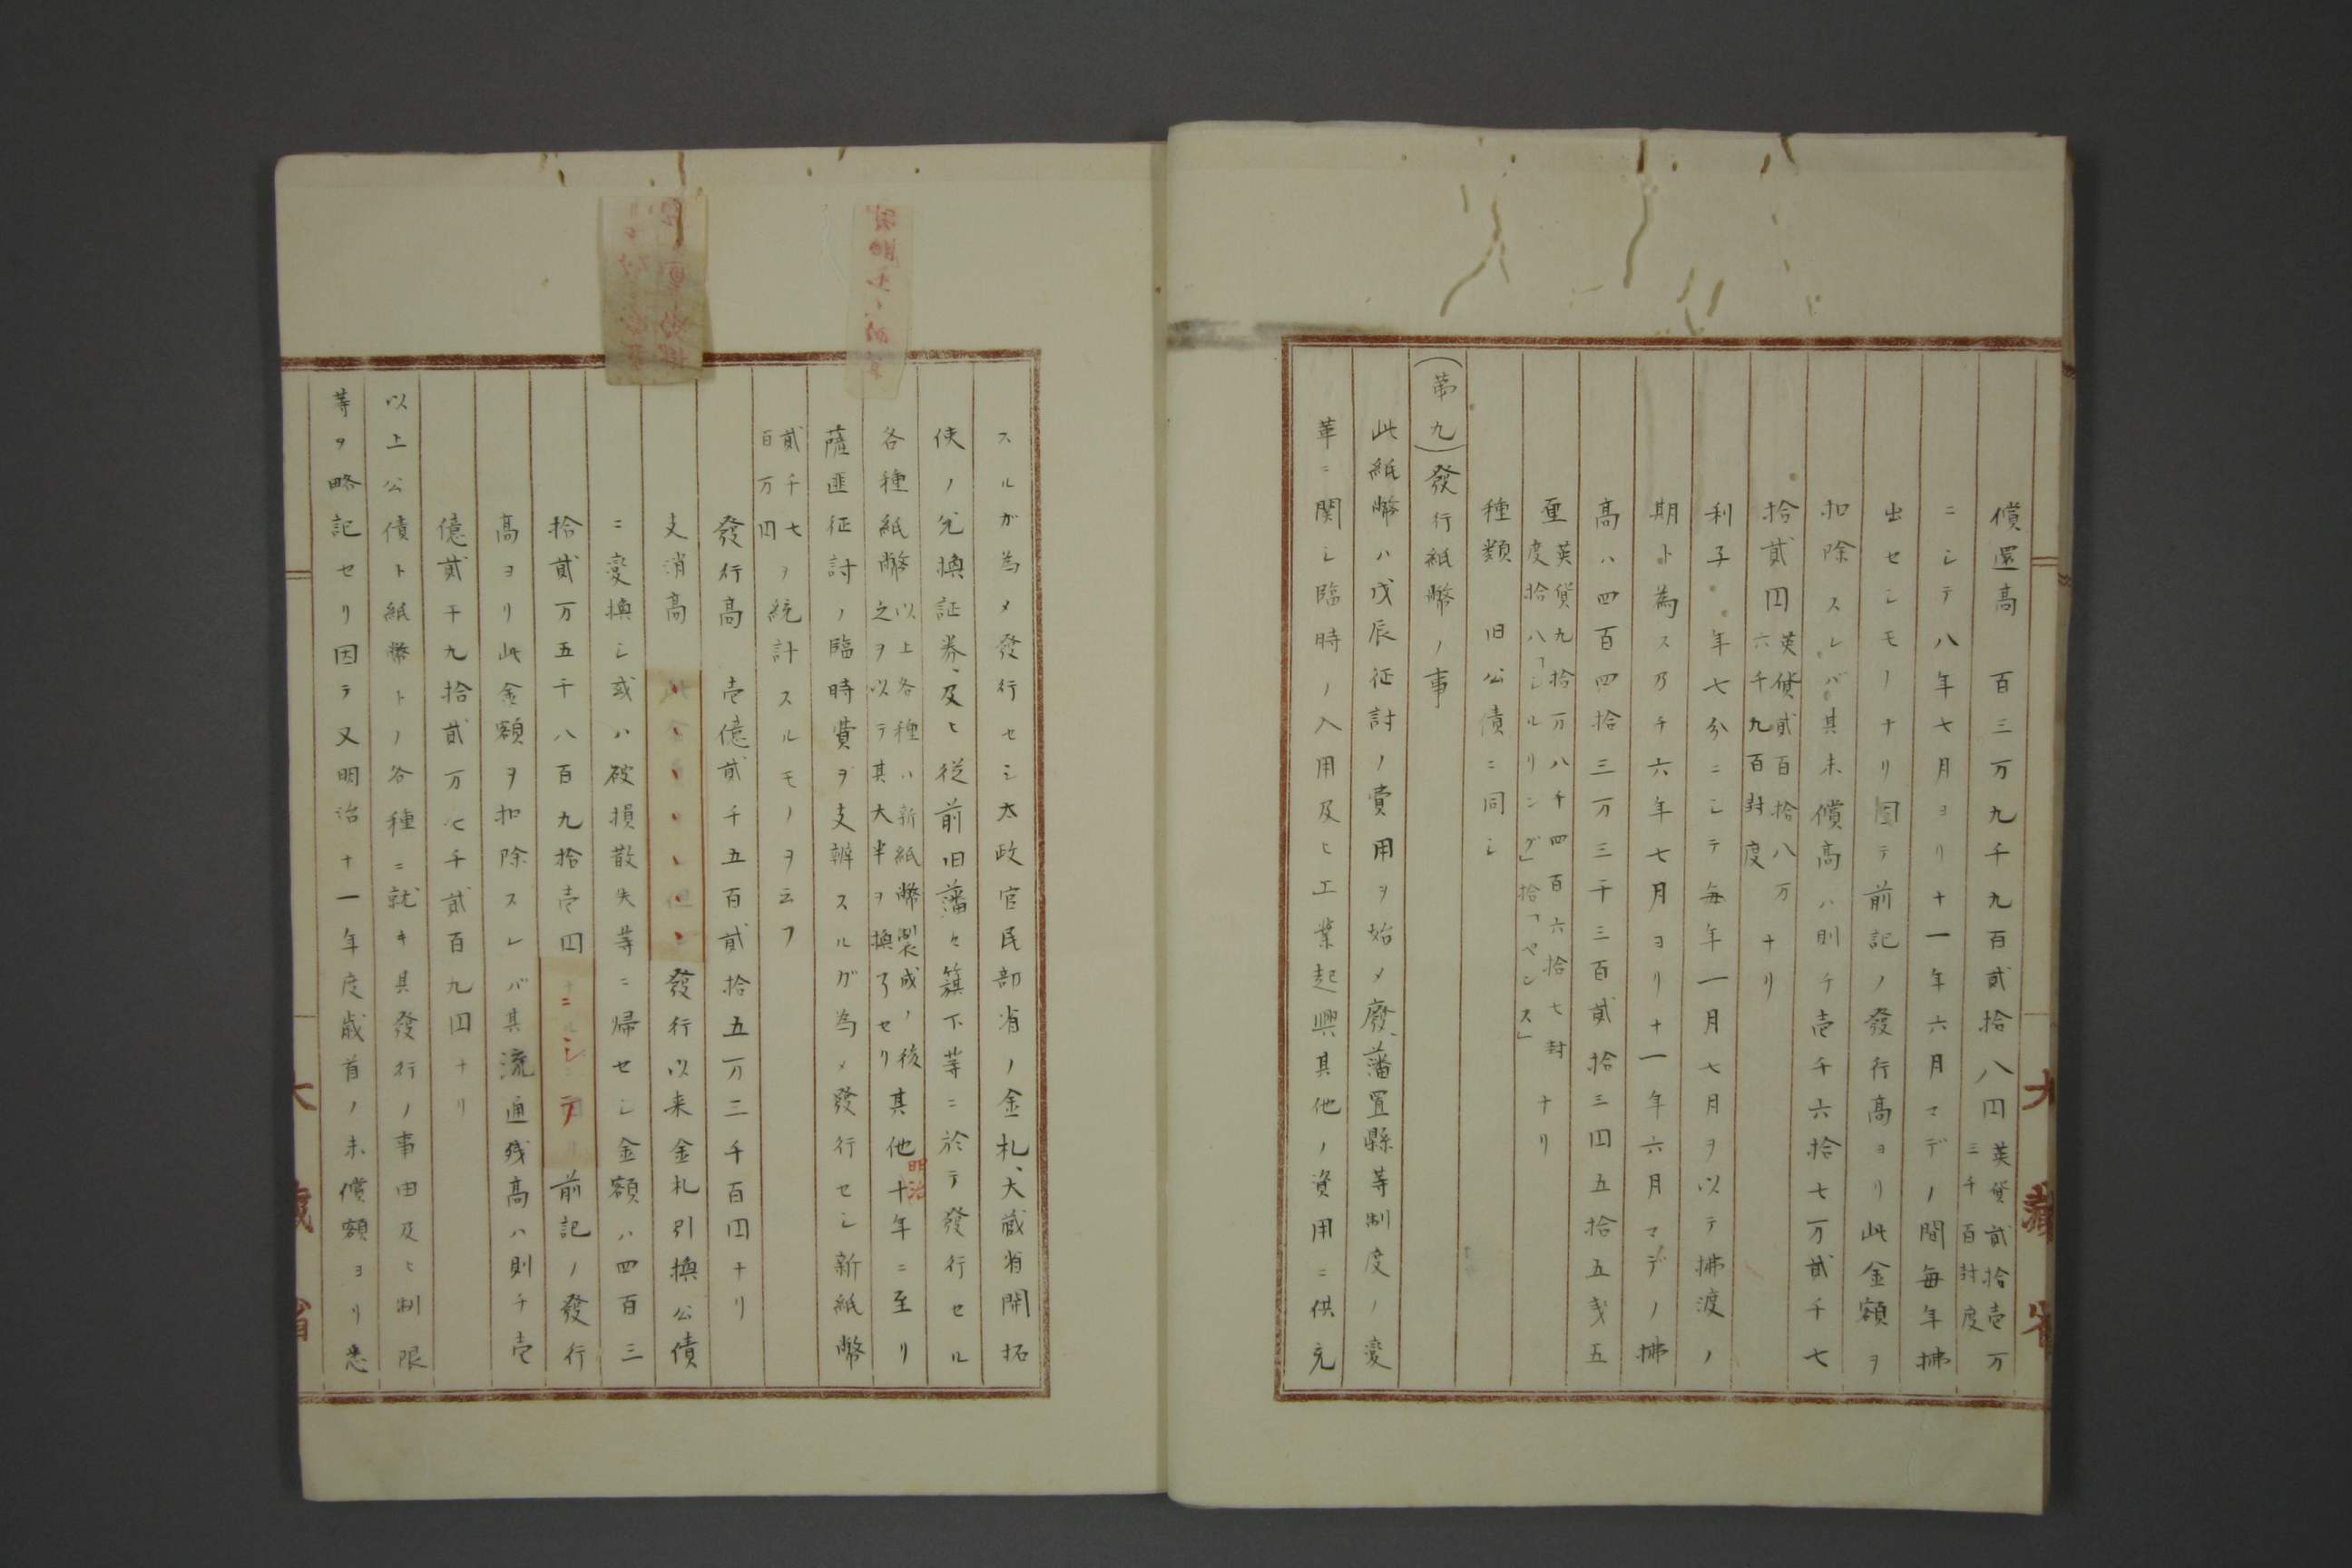 償還高　百三万九千九百貳拾八円英貨貳拾壱万三千百封度
ニシテ八年七月ヨリ十一年六月マデノ間毎年拂
出セシモノナリ因テ前記ノ發行高ヨリ此金額ヲ
扣除スレバ其未償高ハ則チ壱千六拾七万貳千七
拾貳円英貨貳百拾八万六千九百封度ナリ
利子　年七分ニシテ毎年一月七月ヲ以テ拂渡ノ
期ト為ス乃チ六年七月ヨリ十一年六月マデノ拂
高ハ四百四拾三万三千三百貳拾三円五拾五戔五
重英貨九拾万八千四百六拾七封度拾八「シルリング」拾「ペンス」ナリ
種類　旧公債ニ同シ
(第九)發行紙幣ノ事
此紙幣ハ戊辰征討ノ費用ヲ始メ廢藩置縣等制度ノ変
革ニ関シ臨時ノ入用及ヒ工業起興其他ノ資用ニ供充
大藏省
スルガ為メ發行セシ太政官民部省ノ金札、大蔵省開拓
使ノ兌換証券、及ヒ従前旧藩々籏下等ニ於テ發行セル
各種紙幣以上各種ハ新紙幣製成ノ後之ヲ以テ其大半ヲ換了セリ其他明治十年ニ至リ
薩匪征討ノ臨時費ヲ支辦スルガ為メ發行セシ新紙幣
貳千七百万円ヲ統計スルモノヲ云フ
發行高　壱億貳千五百貳拾五万三千百円ナリ
支消高　發行以来金札引換公債
ニ変換シ或ハ破損散失等ニ帰セシ金額ハ四百三
拾貳万五千八百九拾壱円ニシテ前記ノ發行
高ヨリ此金額ヲ扣除スレバ其流通残高ハ則チ壱
億貳千九拾貳万七千貳百九円ナリ
以上公債ト紙幣トノ各種ニ就キ其發行ノ事由及ヒ制限
等ヲ略記セリ因テ又明治十一年度歳首ノ未償額ヨリ悉
大藏省